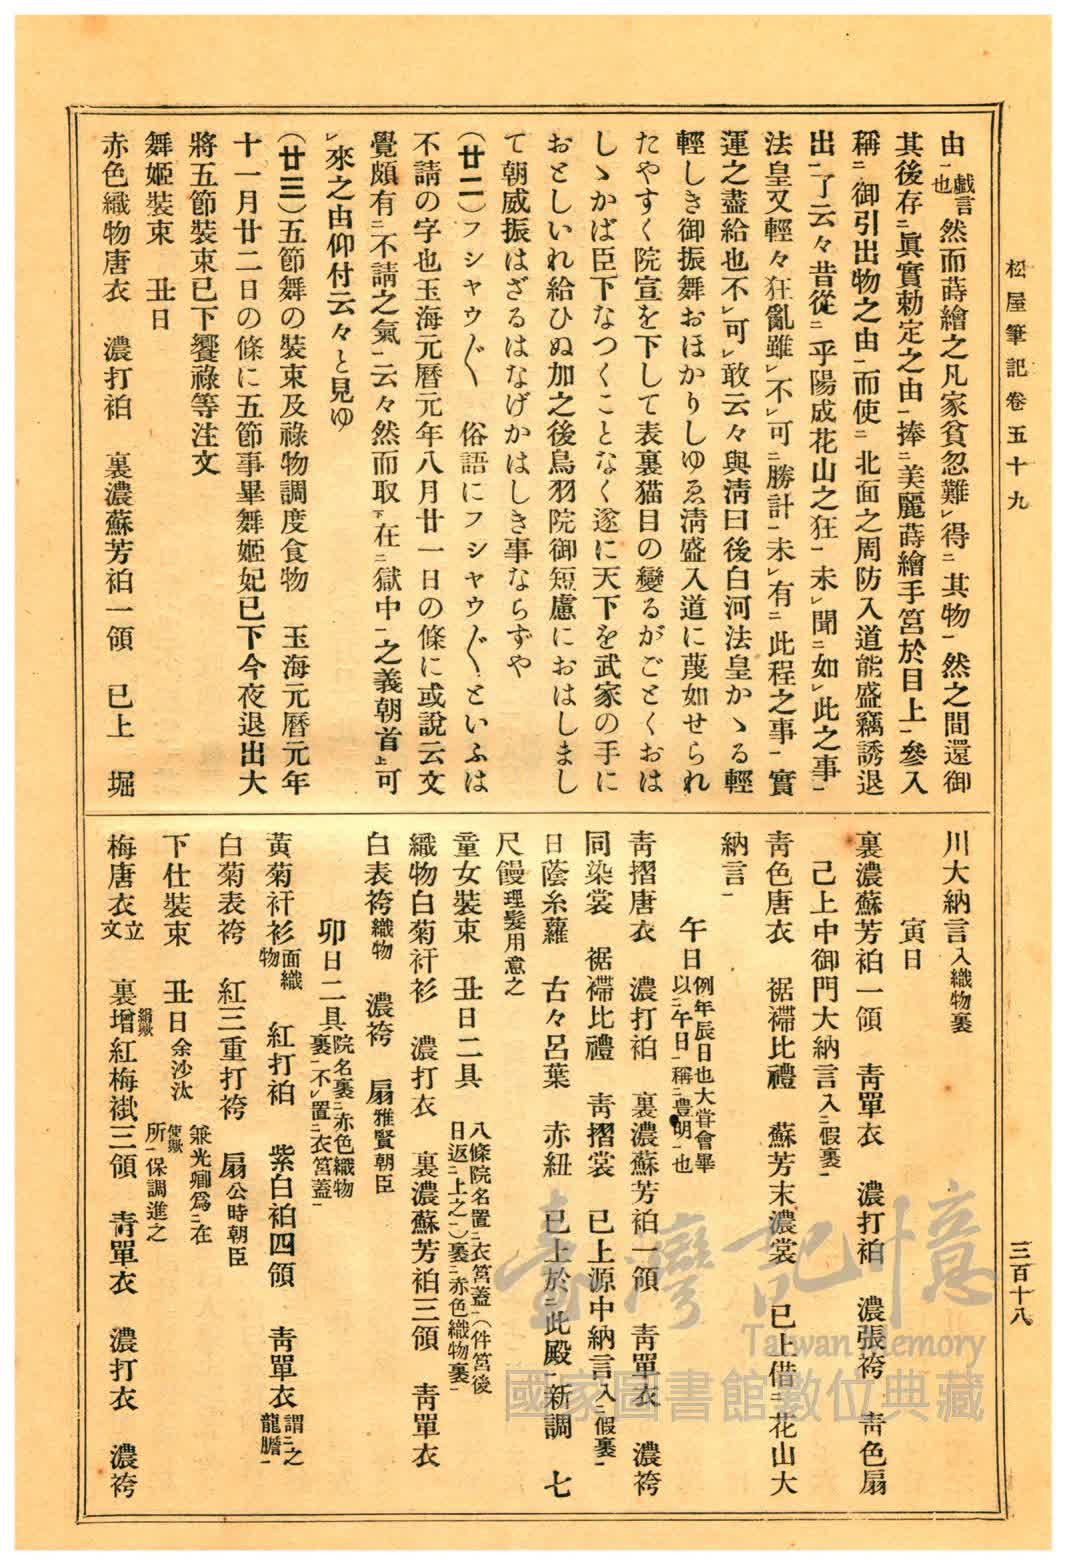 松屋筆記卷五十九
三百十八
由一戲言也然而蒔繪之凡家貧忽難レ得二其物一然之間還御
其後存二眞實勅定之由一捧二美麗蒔繪手筥於目上一參入
稱二御引出物之由一而使二北面之周防入道能盛竊誘退
出一了云々昔從二乎陽成花山之狂一未レ聞二如レ此之事一
法皇又輕々狂亂雖レ不レ可二勝計一未レ有二此程之事一實
運之盡給也不レ可レ敢云々與淸曰後白河法皇かゝる輕
輕しき御振舞おほかりしゆゑ淸盛入道に蔑如せられ
たやすく院宣を下して表裏猫目の變るがごとくおは
しゝかば臣下なつくことなく遂に天下を武家の手に
おとしいれ給ひぬ加之後鳥羽院御短慮におはしまし
て朝威振はざるはなげかはしき事ならずや
(廿二)フシャウ〲　俗語にフシャウ〲といふは
不請の字也玉海元曆元年八月廿一日の條に或說云文
覺頗有二不請之氣一云々然而取下在二獄中一之義朝首上可
レ來之由仰付云々と見ゆ
(廿三)五節舞の裝束及祿物調度食物　玉海元曆元年
十一月廿二日の條に五節事畢舞姬妃已下今夜退出大
將五節裝束已下饗祿等注文
舞姬裝束　丑日
赤色織物唐衣　濃打袙　裏濃蘇芳袙一領　已上　堀
川大納言入織物裏
寅日
裏濃蘇芳袙一領　靑單衣　濃打袙　濃張袴　靑色扇
已上中御門大納言入二假裏一
靑色唐衣　裾襷比禮　蘇芳末濃裳　已上借二花山大
納言一
午日例年辰日也大甞會畢以二午日一稱二豊明一也
靑摺唐衣　濃打袙　裏濃蘇芳袙一領　靑單衣　濃袴
同染裳　裾襷比禮　靑摺裳　已上源中納言入二假裏一
日蔭糸蘿　古々呂葉　赤紐　已上於二此殿一新調　七
尺鬘理髮用意之
童女裝束　丑日二具八條院名置二衣筥蓋一(件筥後日返二上之一)裏二赤色織物裏一
織物白菊衦衫　濃打衣　裏濃蘇芳袙三領　靑單衣
白表袴織物　濃袴　扇雅賢朝臣
卯日二具院名裏二赤色織物裏一不レ置二衣筥蓋一
黃菊衦衫面織物　紅打袙　紫白袙四領　靑單衣謂二之龍膽一
白菊表袴　紅三重打袴　扇公時朝臣
下仕裝束　丑日余沙汰　兼光卿爲二在所一使歟保調進之
梅唐衣立文　裏增絹歟紅梅褂三領　靑單衣　濃打衣　濃袴
臺灣記憶
Taiwan Memory
國家圖書館數位典藏